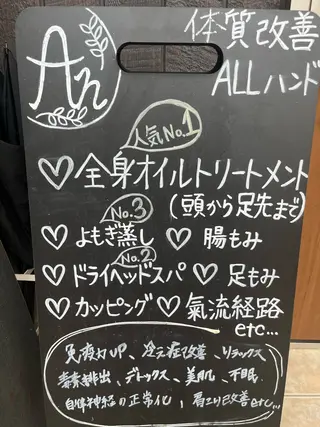 An
体質改善
ALLハンド
人気No.1
♡全身オイルトリートメント
(頭から足先まで)
No.3
♡よもぎ蒸し ♡腸もみ
No.2
♡ドライヘッドスパ ♡足もみ
♡カッピング ♡氣流経路
etc...
免疫力UP、冷え症改善、リラックス
毒素排出、デトックス、美肌、不眠、
自律神経の正常化、肩こり改善etc...